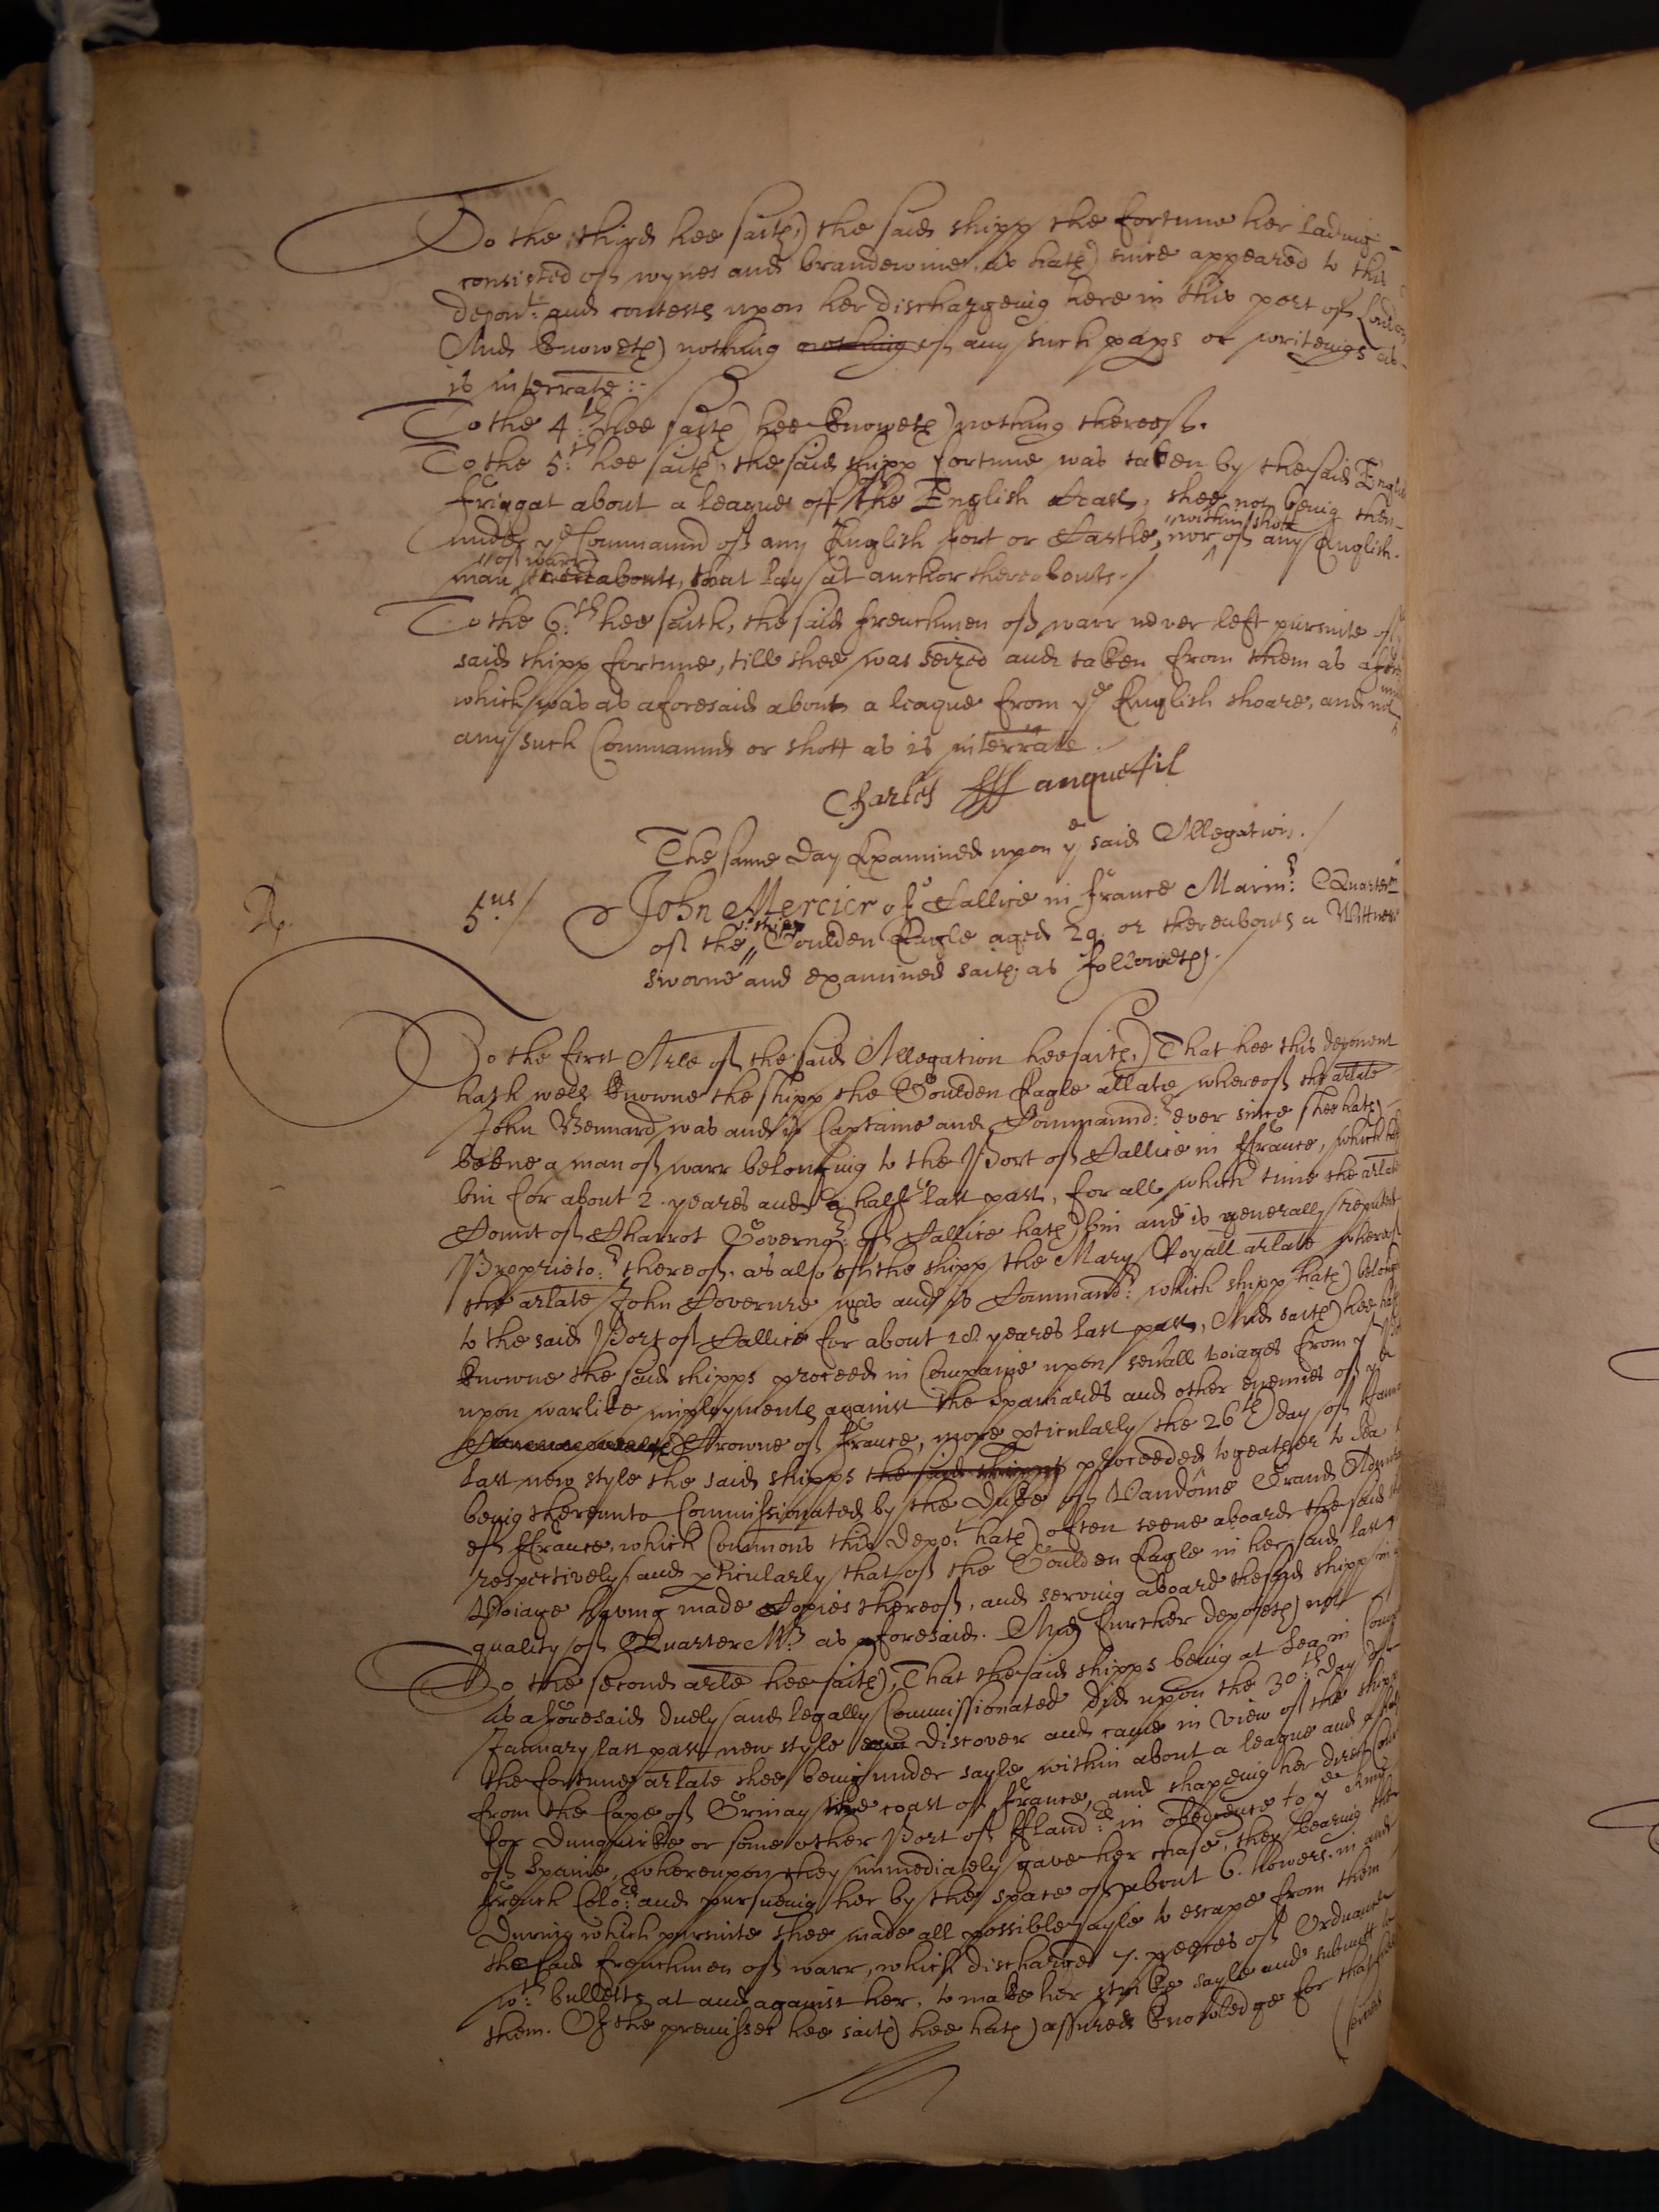 To the third hee saith, the said shipp the fortune her ladeing
consisted of wynes and brandewine, as hath since appeared to this
depont: and contests upon her dischargeing here in this port of London
And knoweth nothing nothing of any such paprs or writeings as
is interrate:-
To the 4:th hee saith hee knoweth nothing thereof.
To the 5:th hee saith, the said shipp fortune was taken by the said English
friggat about a league off the English Coast, shee not being then
under ye Command of any English fort or Castle, nor within shott of any English
man of warr thereabouts, that lay at anchor thereabouts./
To the 6:th hee saith, the said frenchmen of warr never left pursuite of
said shipp fortune, till shee was seized and taken from them as afores
which was as aforesaid about a league from ye English shoare, and not under
any such Command or shott as is interrate.
Charles Hanquetil
The same day Examined upon ye said Allegation./
5.us/ John Mercier of Callice in france Marinr: Quarter Mr
of the shipp Goulden Eagle aged 29. or thereabouts a Wittnes
sworne and examined saith as followeth./
To the first Arle of the said Allegation hee saith, That hee this deponent
hath well knowne the shipp the Goulden Eagle arlate whereof the arlate
John Bennard was and is Captaine and Command:r ever since shee hath
beene a man of warr belonging to the Port of Callice in ffrance, which hath
bin for about 2. yeares and a half last past, for all which time the arlate
Count of Charrot Governor: of Callice hath bin and is generally reputed
Proprieto:r thereof, as also of the shipp the Mary Royall arlate whereof
the arlate John Coverure was and is Command:r which shipp hath belonged
to the said Port of Callice for about 18 yeares last past, And saith hee hath
knowne the said shipps proceed in Companie upon severall voiages from ye
upon warlike imployments against the Spaniards and other enemies of ye
Crowne of france, more pticularly the 26th day of Janua
last new style the said shipps the said shipps proceeded togeather to sea
being thereunto Commissionated by the Duke of Vandôme Grand Admirall
of ffrance, which Comissions this depo:t hath often seene aboard the said
respectively, and pticularly that of the Goulden Eagle in her said last
Voiage having made Copies thereof, and serving aboard the said shipp in
quality of Quarter Mr: as aforesaid. And further deposeth not
To the second arle hee saith, That the said shipps being at Sea in Comp
as aforesaid duely and legally Commissionated did upon the 30:th day of
January last past new style discover and came in view of the shipp
the fortune arlate shee being under sayle within about a league and a half
from the Cape of Grinay the coast of france, and shapeing her direct Course
for Dunquirke or some other Port of ffland:rs in obedience to ye King
of Spaine, whereupon they immediately gave her chase, they bearing the
french Colo:rs and pursueing her by the space of about 6. howers. in and
During which pursuite shee made all possible sayle to escape from them
the said frenchmen of warr, which discharged 7. peeces of Ordnance
wth: bulletts at and against her, to make her strike sayle and submitt to
them. Of the premisses hee saith hee hath assured knowledge for that hee